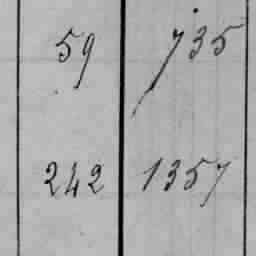 59 735
242 1357